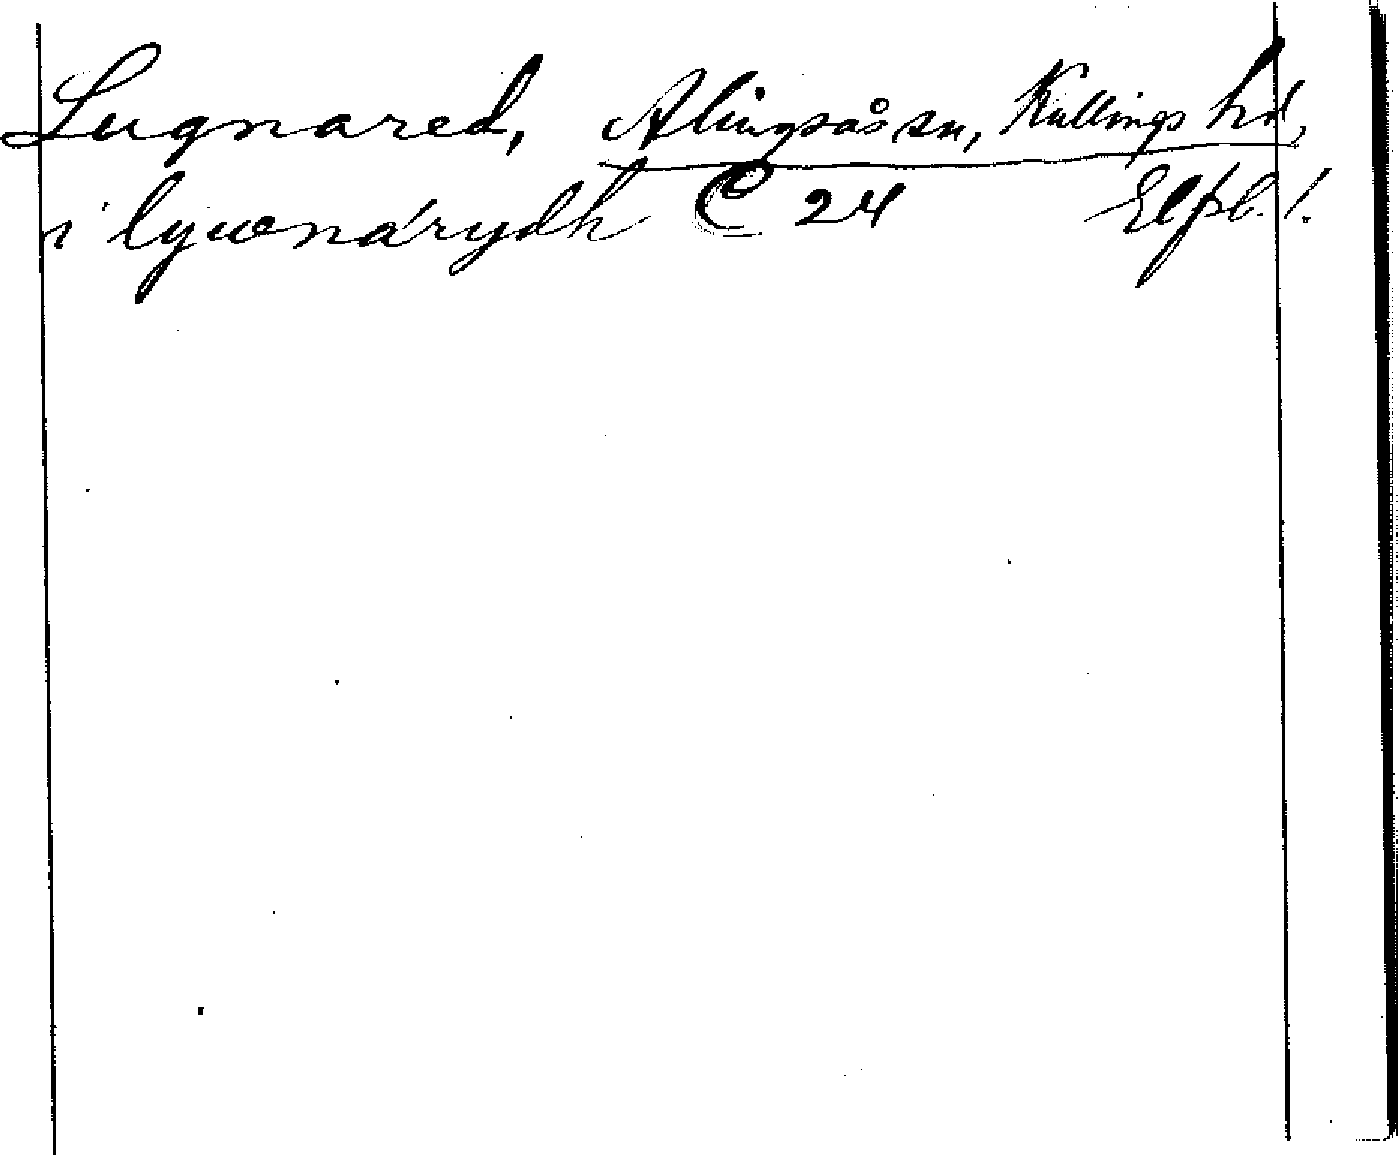 Lugnared, Alingsås sn, Kullings hd,
i lywnarydh C 24 Elfsb. l.